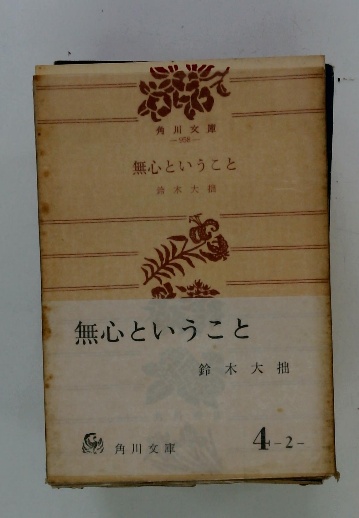 角川文庫
無心ということ
鈴木大拙
無心ということ
鈴木大拙
角川文庫
4-2-